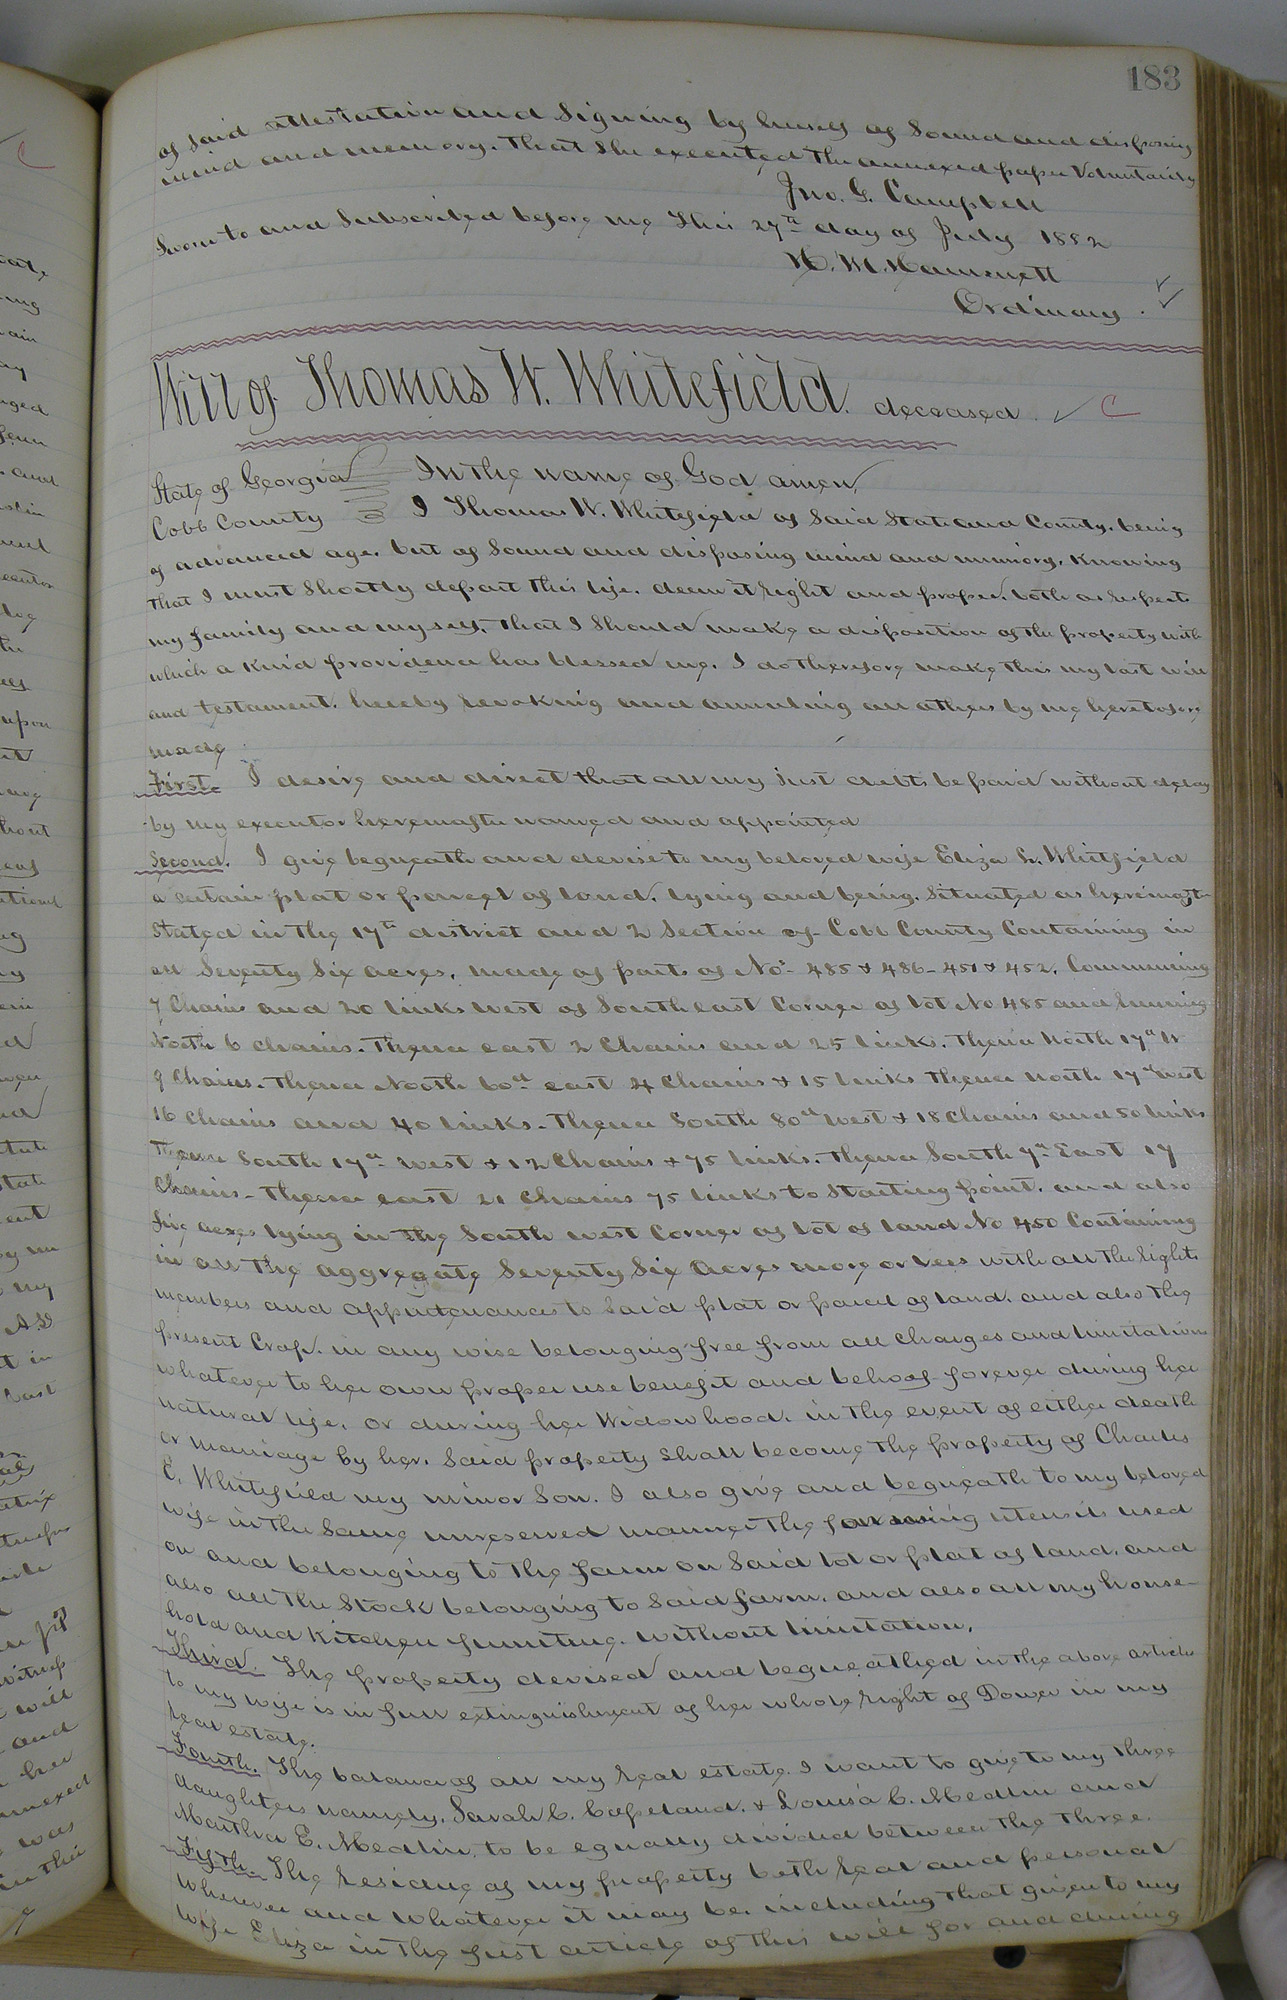 183
of said attestation and Signing by herself of Sound and disposing
mind and memory. That She executed the annexed paper Voluntarily
Jno. G. Campbell
Sworn to and Subscribed before me This 27th day of July 1882
H. M. Hammett
Ordinary.
Will of Thomas W. Whitefield. deceased. C
State of Georgia In the name of God amen,
Cobb County I Thomas W. Whitefield of Said State and County, being
of advanced age. but of Sound and disposing mind and memory, Knowing
that I must Shortly depart this life. deem it right and proper. both as respects
my family and myself, that I Should make a disposition of the property with
which a Kind providence has blessed me. I do therefore make this my last will
and testament. hereby revoking and annuling all others by me heretofore
made
First. I desire and direct that all my just debts be paid without delay
by my executor hereinafter named and appointed
Second. I give bequeath and devise to my beloved wife Eliza Whitfield
a certain plat or parcel of land. lying and being. Situated as hereinafter
Stated in the 17th district and 2 Section of Cobb County Containing in
all Seventy Six acres. made of parts of Nos 485 & 486 - 451 & 452. Commencing
7 Chains and 20 links west of South east Corner of lot No 485 and running
North 6 chains. Thence east 2 Chains and 25 links. Thence North 17d W
9 Chains. Thence North 60d east 4 Chains & 15 links Thence north 17d West
16 Chains and 40 links - Thence South 80d West & 18 Chains and 50 links
Thence South 17d west & 12 Chains & 75 links. Thence South 7d East 17
Chains - Thence east 21 Chains 75 links to Starting point. and also
five acres lying in the South west Corner of lot of land No 450 Containing
in all the aggregate Seventy Six acres more or less with all the rights
members and appurtenances to Said plat or parcel of land. and also the
present Crop. in any wise belonging free from all charges and limitations
whatever to her own proper use benefit and behoof forever during her
natural life, or during her Widowhood. in the event of either death
or marriage by her. Said property shall become the property of Charles
E. Whitefield my minor Son. I also give and bequeath to my beloved
wife in the Same unreserved manner the farming utensils used
on and belonging to the farm on Said lot or plat of land. and
also all the Stock belonging to Said farm. and also all my house-
hold and Kitchen furniture. without limitation.
Third. The property devised and bequeathed in the above article
to my wife is in full extinguishment of her whole right of Dower in my
real estate.
Fourth. The balance of all my real estate. I want to give to my three
daughters namely. Sarah C. Copeland, & Louisa C. Medlin and
Martha E. Medlin, to be equally divided between the three.
Fifth. The residue of my property both real and personal
wherever and whatever it may be. including that given to my
wife Eliza in the first article of this will for and during